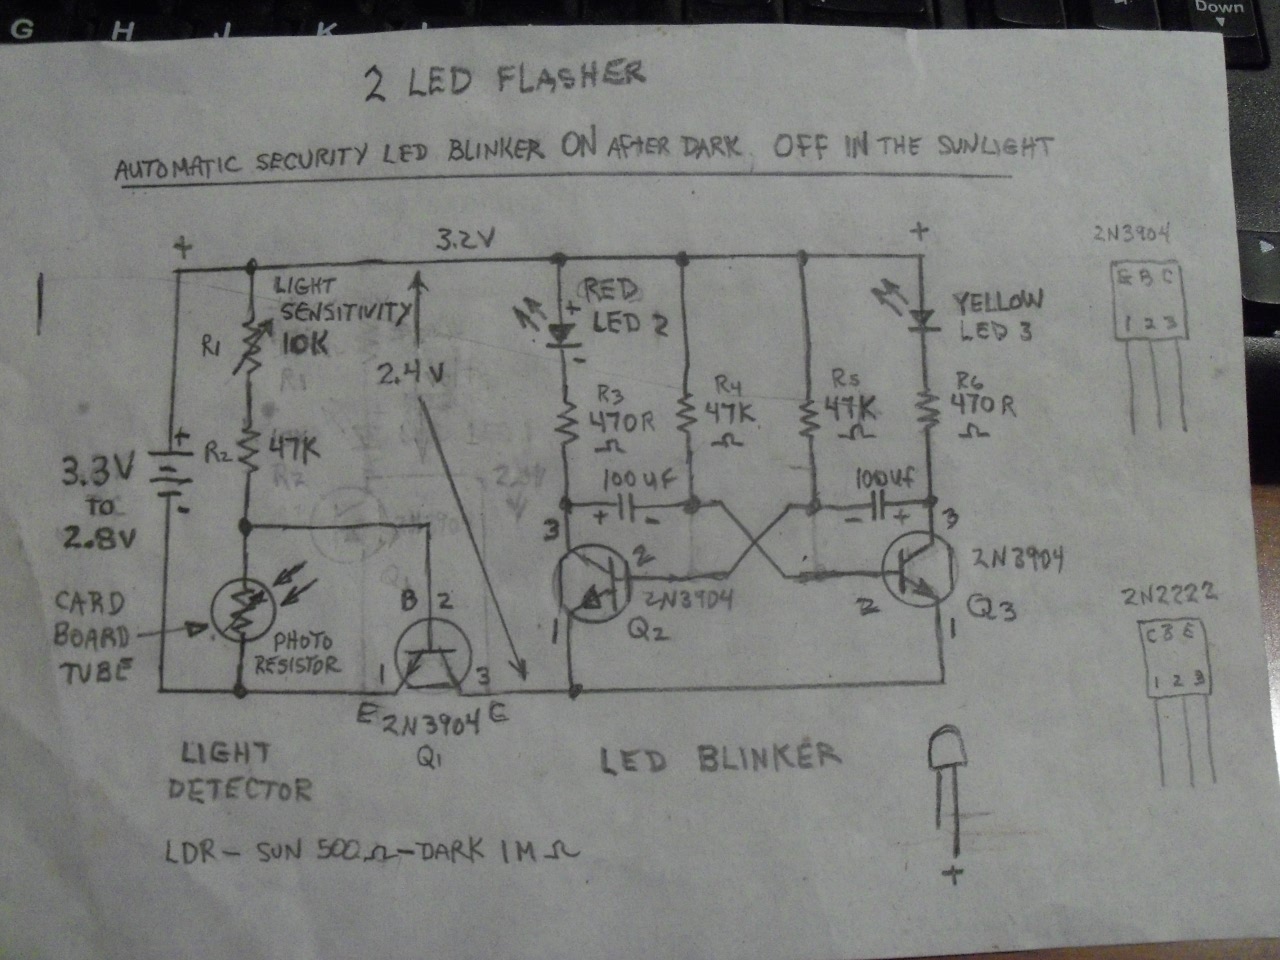 G H J K L
Down
2 LED FLASHER
AUTOMATIC SECURITY LED BLINKER ON AFTER DARK OFF IN THE SUNLIGHT
+
3.2V
+
2N3904
E B C
1 2 3
LIGHT
SENSITIVITY
10K
R1
2.4V
RED
LED 2
+
-
YELLOW
LED 3
R2
47K
R3
470R
Ω
R4
47K
Ω
R5
47K
Ω
R6
470R
Ω
3.3V
TO
2.8V
+
-
100uF
+ -
100uf
- +
3
2
1
2N3904
Q2
3
2
1
2N3904
Q3
CARD
BOARD
TUBE
PHOTO
RESISTOR
B 2
1 3
E C
2N3904
Q1
2N2222
C B E
1 2 3
LIGHT
DETECTOR
LED BLINKER
LDR - SUN 500Ω - DARK 1MΩ
+